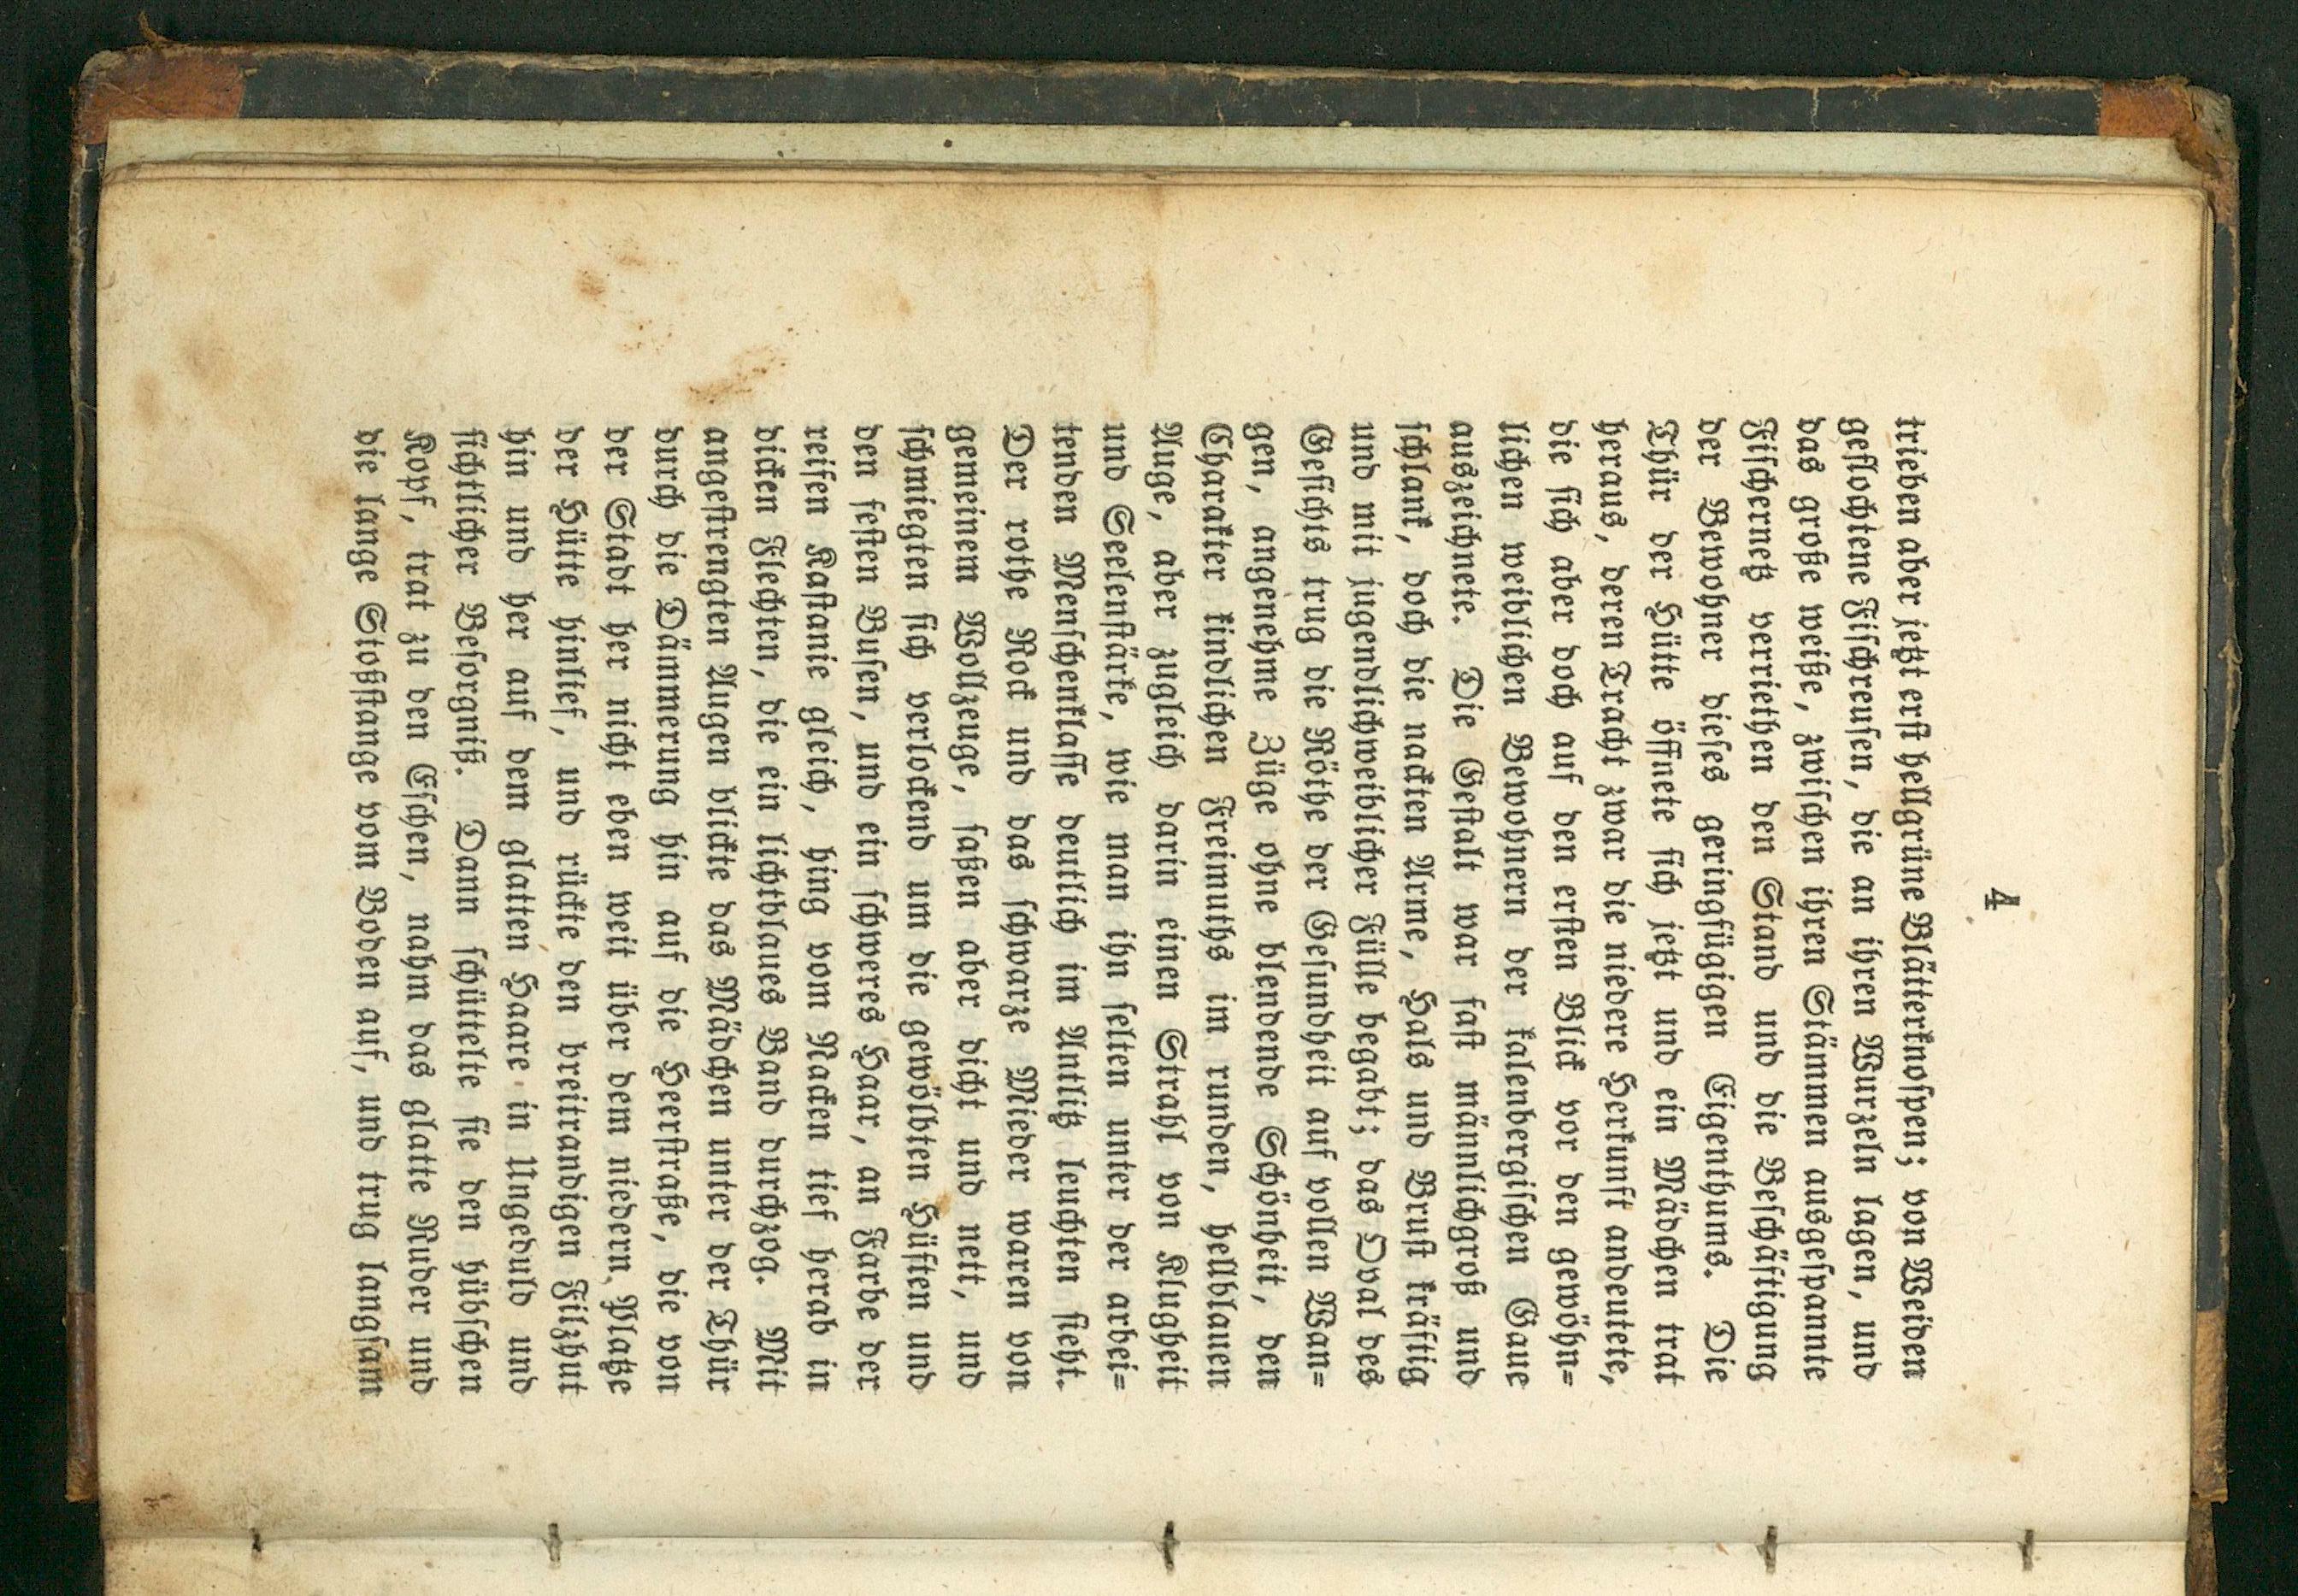 4
trieben aber jetzt erst hellgrüne Blätterknospen; von Weiden
geflochtene Fischreusen, die an ihren Wurzeln lagen, und
das große weiße, zwischen ihren Stämmen ausgespannte
Fischernetz verriethen den Stand und die Beschäftigung
der Bewohner dieses geringfügigen Eigenthums. Die
Thür der Hütte öffnete sich jetzt und ein Mädchen trat
heraus, deren Tracht zwar die niedere Herkunft andeutete,
die sich aber doch auf den ersten Blick vor den gewöhn=
lichen weiblichen Bewohnern der kalenbergischen Gaue
auszeichnete. Die Gestalt war fast männlichgroß und
schlank, doch die nackten Arme, Hals und Brust kräftig
und mit jugendlichweiblicher Fülle begabt; das Oval des
Gesichts trug die Röthe der Gesundheit auf vollen Wan=
gen, angenehme Züge ohne blendende Schönheit, den
Charakter kindlichen Freimuths im runden, hellblauen
Auge, aber zugleich darin einen Strahl von Klugheit
und Seelenstärke, wie man ihn selten unter der arbei=
tenden Menschenklasse deutlich im Antlitz leuchten sieht.
Der rothe Rock und das schwarze Mieder waren von
gemeinem Wollzeuge, saßen aber dicht und nett, und
schmiegten sich verlockend um die gewölbten Hüften und
den festen Busen, und ein schweres Haar, an Farbe der
reifen Kastanie gleich, hing vom Nacken tief herab in
dicken Flechten, die ein lichtblaues Band durchzog. Mit
angestrengten Augen blickte das Mädchen unter der Thür
durch die Dämmerung hin auf die Heerstraße, die von
der Stadt her nicht eben weit über dem niedern Platze
der Hütte hinlief, und rückte den breitrandigen Filzhut
hin und her auf dem glatten Haare in Ungeduld und
sichtlicher Besorgniß. Dann schüttelte sie den hübschen
Kopf, trat zu den Eschen, nahm das glatte Ruder und
die lange Stoßstange vom Boden auf, und trug langsam